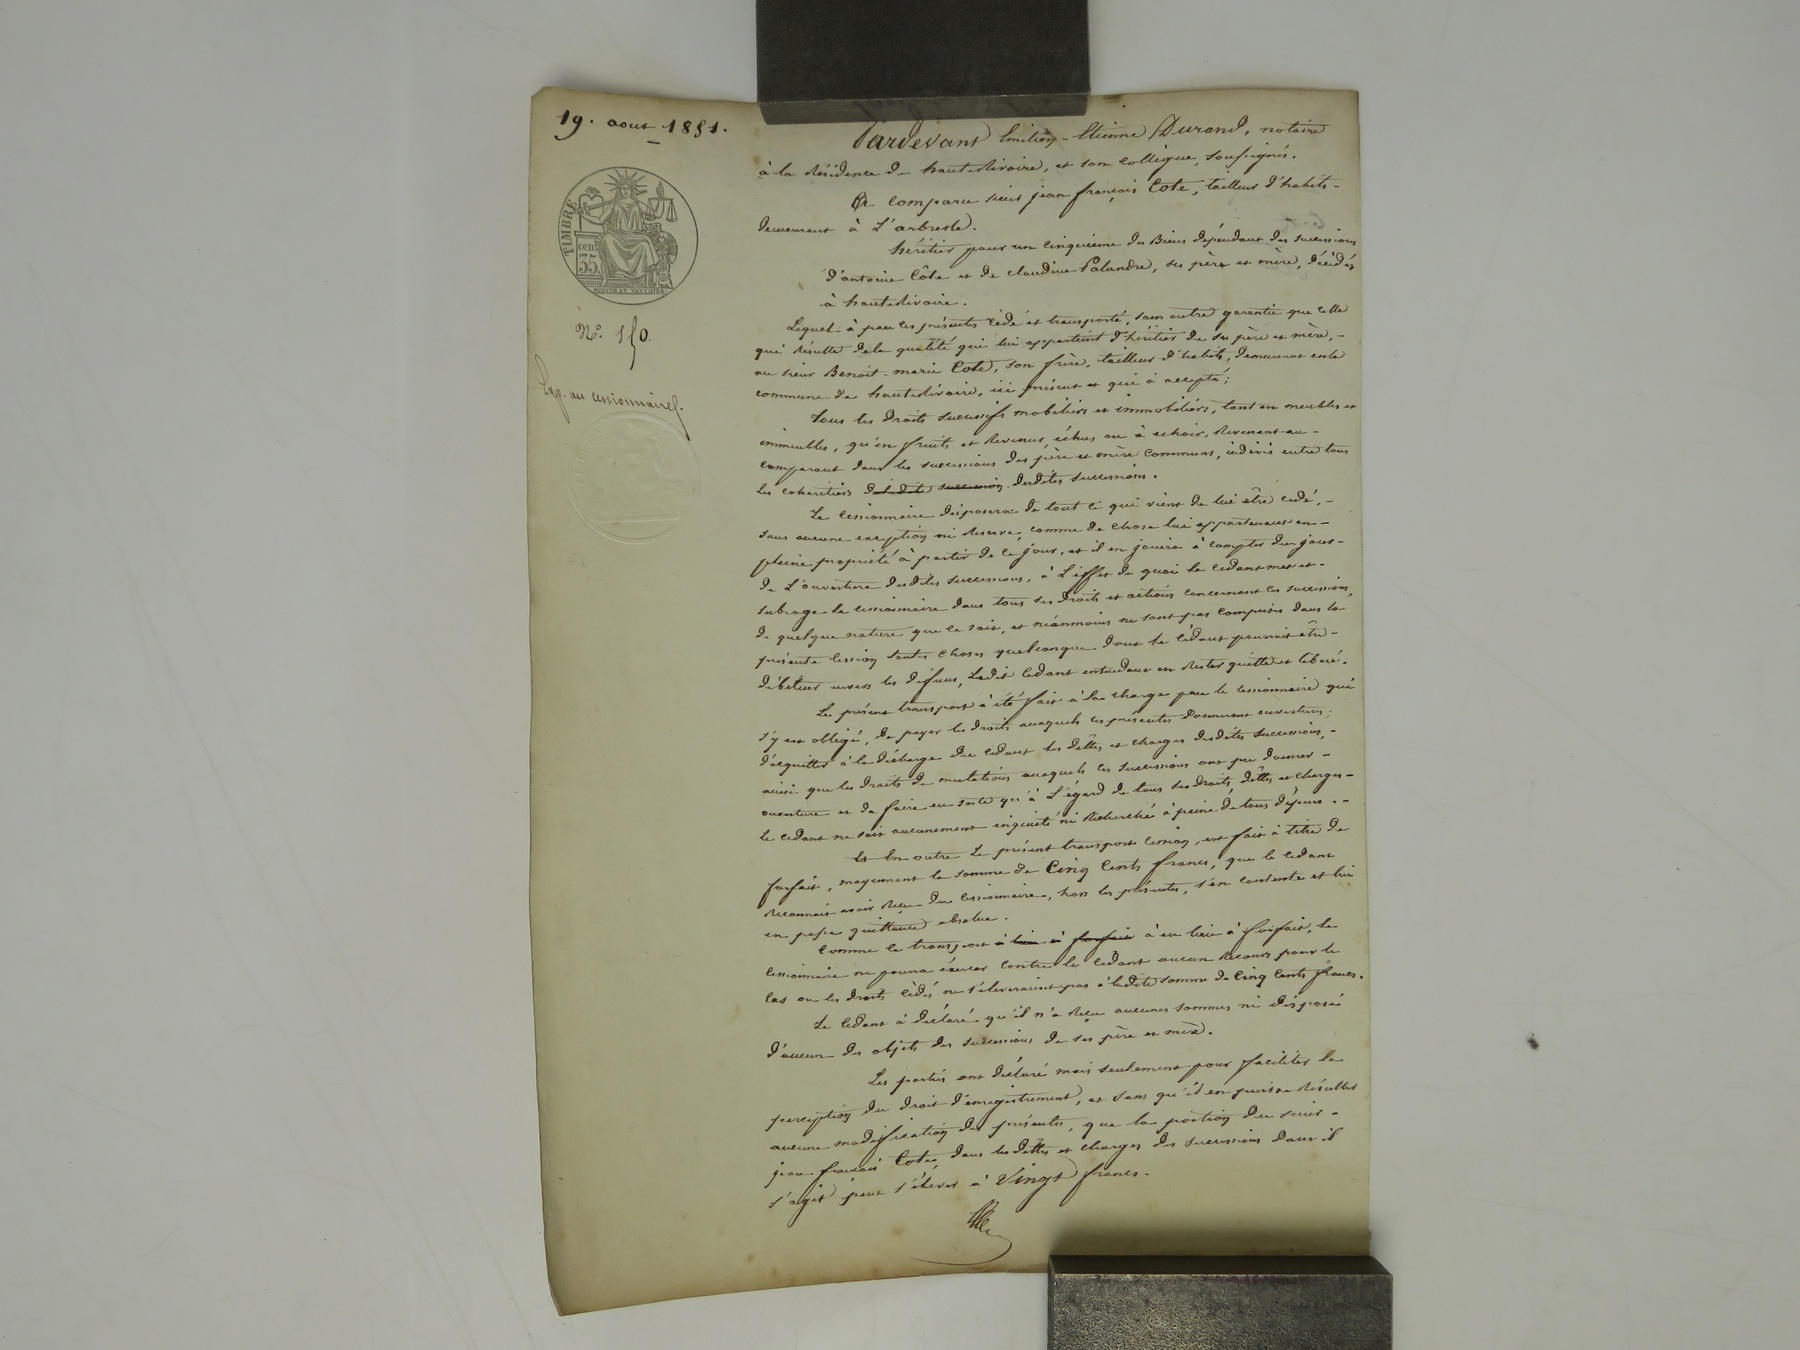 19. aout 1851.
TIMBRE
35 cen
N.º 150.
Exp. au cessionnaire.
Pardevant Emilien-Etienne Durand, notaire
à la Résidence de hauterivoire, et son collègue, soussignés.
A comparu sieur jean françois Cote, tailleur d'habits-
demeurant à L'arbresle.
héritier pour un cinquieme des Biens dépendant des successions
d'antoine Côte et de claudine Palandre, ses père et mère, décédés
à hauterivoire.
Lequel à par ces présentes cédé et transporté, sans autre garantie que celle
qui Résulte de la qualité qui lui appartient d'héritier de ses père et mère,-
au sieur Benoit-marie Cote, son frère, tailleur d'habits, demeurant en la
commune de hauterivoire, ici présent et qui à accepté;
Tous les Droits successifs mobiliers et immobiliers, tant en meubles et
immeubles, qu'en fruits et Revenus, échus ou à échoir, Revenant au-
comparant dans les successions des père et mère communs, indivis entre tous
les cohéritiers de ladite succession desdites successions.
Le cessionnaire disposera de tout ce qui vient de lui être cédé,-
sans aucune exception ni Reserve, comme de chose lui appartenant en-
pleine propriété à partir de ce jour, et il en jouira à compter du jour-
de L'ouverture desdites successions, à L'effet de quoi le cédant met et-
subroge le cessionnaire dans tous ses droits et actions concernant ces successions,
de quelque nature que ce soit, et néanmoins ne sont pas comprises dans la
présente cession toutes choses quelconque dont le cédant pourrait être-
débiteur envers les défunts, Ledit cédant entendant en Rester quitte et libéré.
Le présent transport à été fait à la charge par le cessionnaire qui
s'y est obligé, de payer les droits auxquels ces présentes donneront ouverture;
d'acquitter à la décharge du cédant les dêttes et charges desdites successions,-
ainsi que les droits de mutations auxquels les successions ont pu donner-
ouverture et de faire en sorte qu'à L'égard de tous ses droits, dêttes et charges-
le cédant ne soit aucunement inquiété ni Recherché à peine de tous dépens.-
Et En outre Le présent transport cession, est fait à titre de
forfait, moyennant la somme de Cinq Cents francs, que le cédant
Reconnait avoir Reçu du cessionnaire, hors les présentes, s'en contente et lui
en passe quittance absolue.
Comme ce transport à lieu à forfait à eu lieu à forfait, le
cessionnaire ne pourra éxercer contre le cédant aucun Recours pour le
cas ou les droits cédés ne s'éleveraient pas à ladite somme de Cinq Cents francs.
Le cédant à déclaré qu'il n'a Reçu aucunes sommes ni disposé
d'aucun des objets des successions de ses père et mère.
Les parties ont déclaré mais seulement pour faciliter la
perception du droit d'enregistrement, et sans qu'il en puisse Résulter
aucune modification des présentes, que la portion du sieur-
jean françois Cote, dans les dêttes et charges des successions dont il
s'agit peut s'élever à Vingt francs.